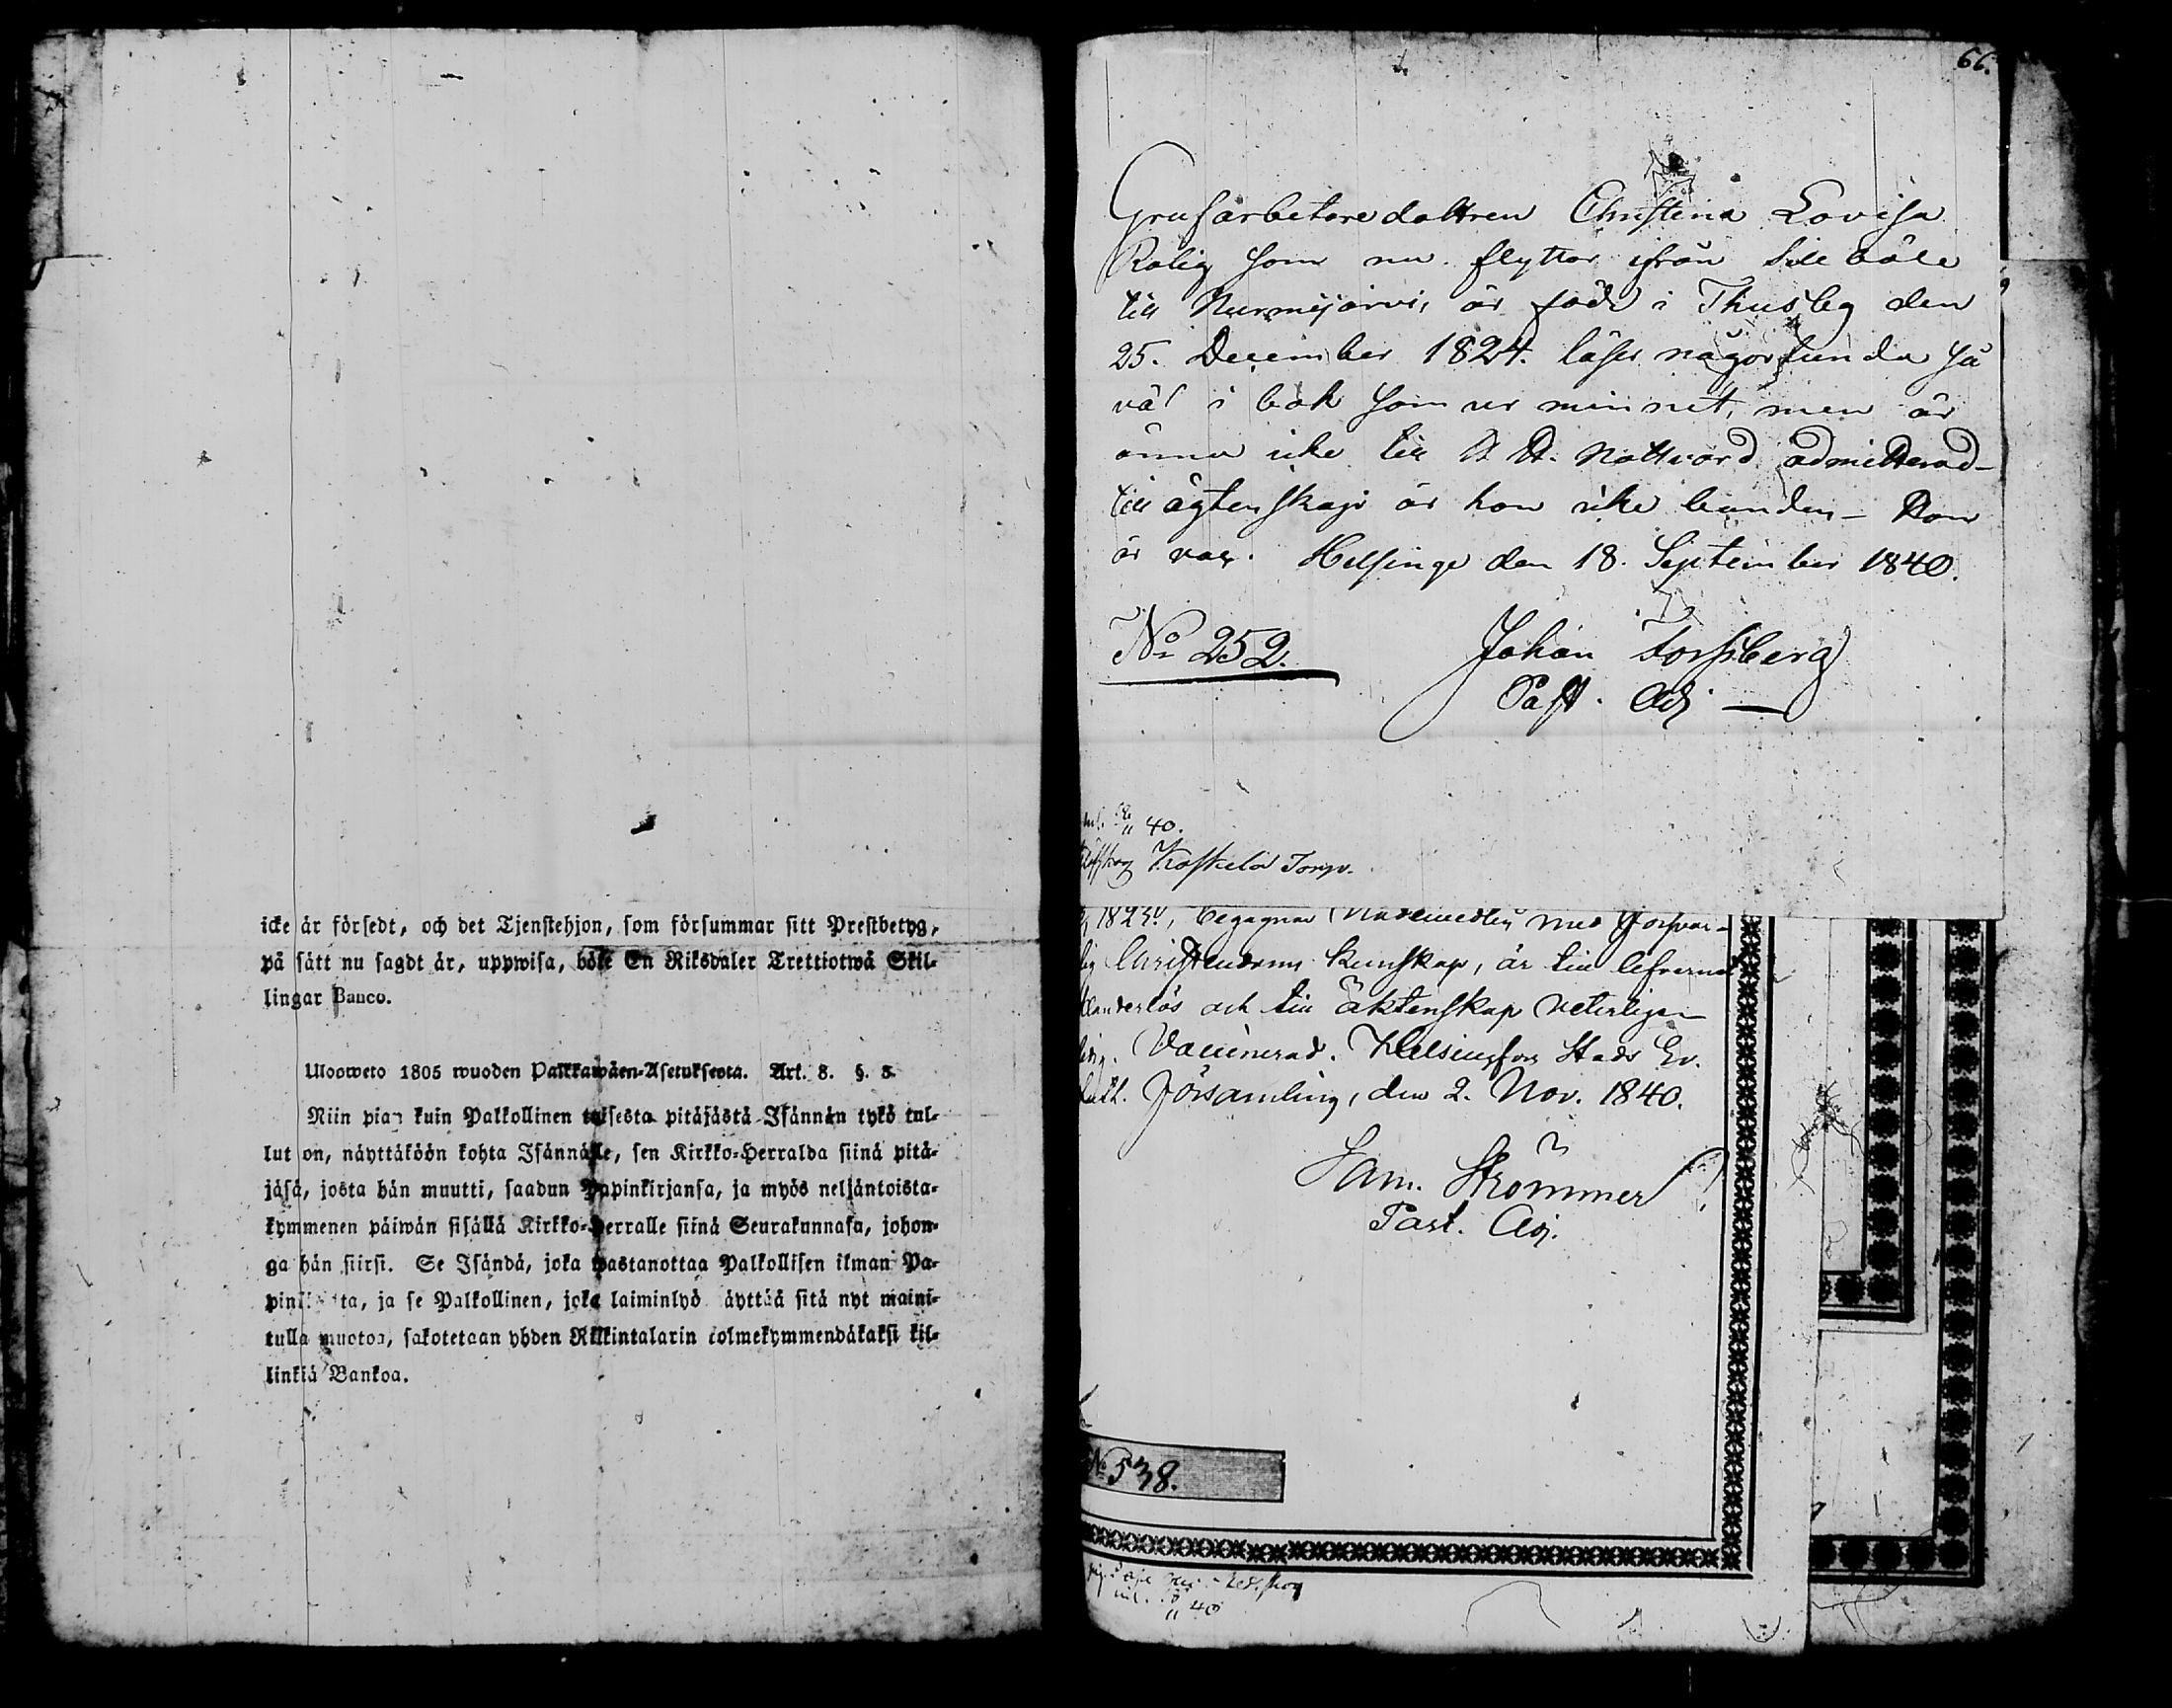 icke är försedt, och det Tjenstehjon, som försummar sitt Prestbetyg,
på sätt nu sagdt är, uppwisa, böte En Riksdaler Trettiotwå Skil-
lingar Banco.
Uloosweto 1805 wuoden Palkkawäen-Asetuksesta. Art. 8. §. 5.
Niin pian kuin Palkollinen toisesta pitäjästä Isännän tykö tul-
lut on, näyttäköön kohta Isännälle, sen Kirkko-Herralda siinä pitä-
jäsä, josta hän muutti, saadun Papinkirjansa, ja myös neljäntoista-
kymmenen päiwän sisällä Kirkko-Herralle siinä Seurakunnasa, johon-
ga hän siirsi. Se Isändä, joka wastanottaa Palkollisen ilman Pa-
ja se Palkollinen, joka laiminlyö äyttää sitä nyt maini-
tulla muotoa, sakotetaan yhden Riikintalarin colmekymmendäkaksi kil-
linkiä Bankoa.
66.
Grufarbetaredottren Christina Lovisa
Rolig som nu flyttar ifrån Sillböle
till Nurmijärvi, är född i Thusby den
25. December 1824. läser någorlunda så
väl i bok som ur minnet, men är
ännu icke till H. H. Nattvard admitterad-
till ägtenskap är hon icke bunden – Hon
är vac. Helsinge den 18. September 1840.
No 252.
Johan Forssberg
Past. Adj
40.
Koskela Torp.
1823, begagnar Nådemedlen med försvar-
lig Christendoms kunskap, är till lefvernet
klanderlös och till äktenskap veterligen
ledig. Vaccinerad. Helsingfors Stads Ev.
Luth. Församling, den 2. Nov. 1840.
Sam. Strömmer
Past. Adj.
No 538.
40